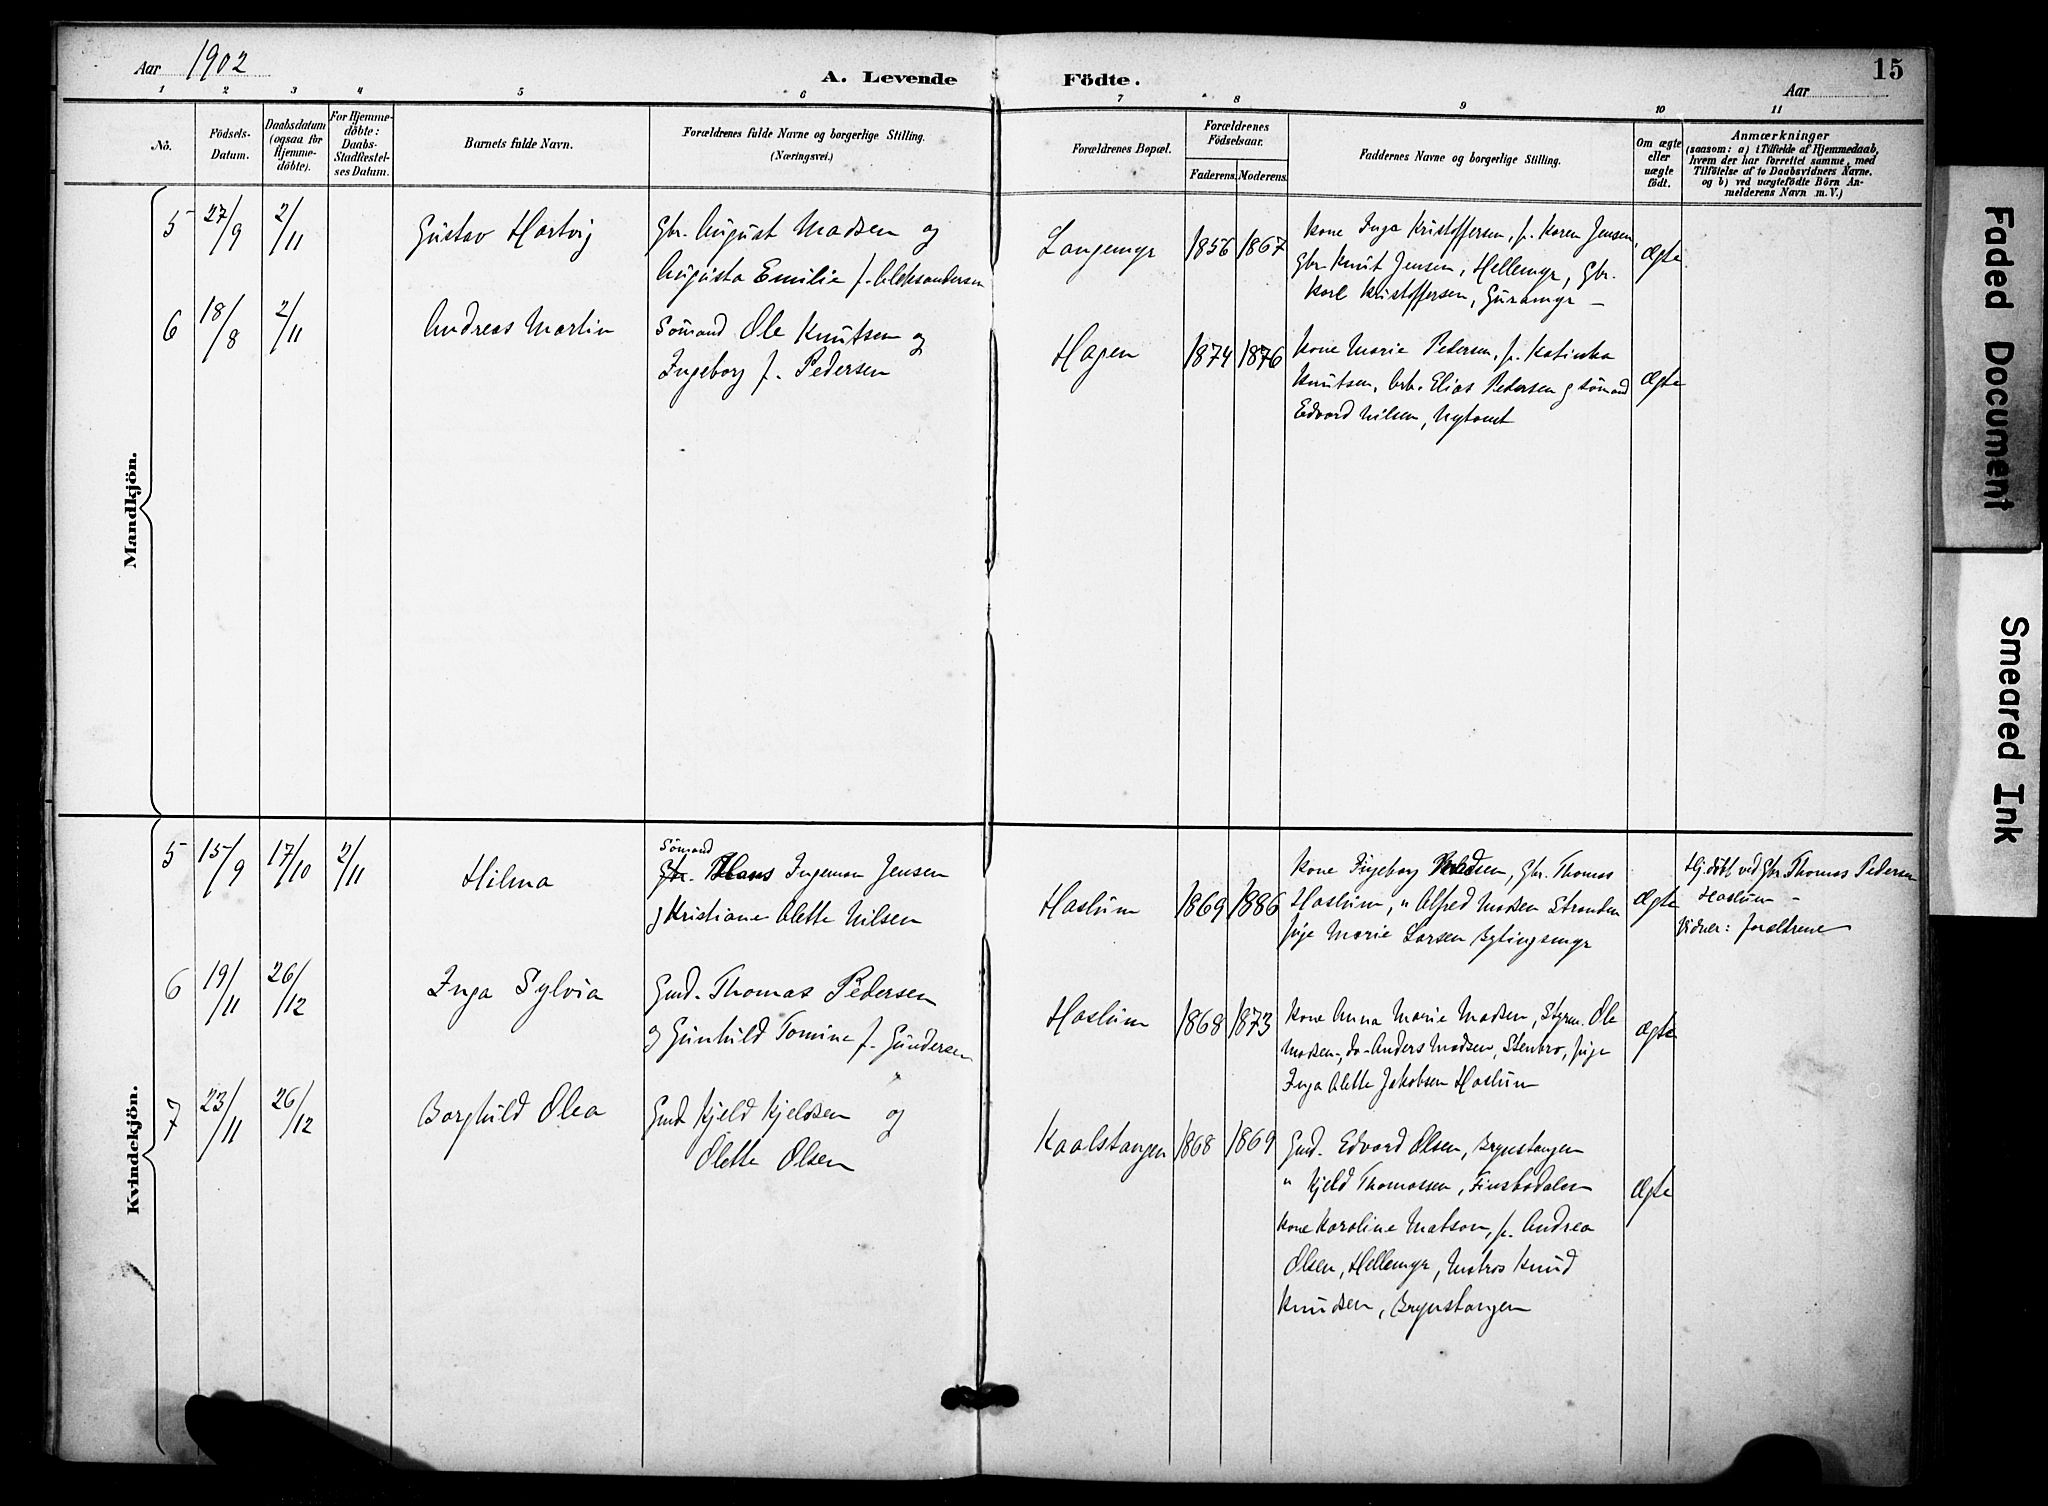 Aar 1902
A. Levende Födte.
Aar
15
1 2 3 4 5 6 7 8 9 10 11
Nö.
Födsels-Datum.
Daabsdatum (ogsaa for Hjemme-döbte).
For Hjemme-döbte: Daabs-Stadfæstel-ses Datum.
Barnets fulde Navn.
Forældrenes fulde Navne og borgerlige Stilling.
(Næringsvei.)
Forældrenes Bopæl.
Forældrenes Födselsaar.
Faderens. Moderens.
Faddernes Navne og borgerlige Stilling.
Om ægte eller uægte födt.
Anmærkninger
(saasom: a) i Tilfælde af Hjemmedaab,
hvem der har forrettet samme, med
Tilföielse af to Daabsvidners Navne.
og b) ved uægtefödte Börn An-
melderens Navn m. V.)
Mandkjön.
5 27/9 2/11 Gustav Hartvig
Gbr. August Madsen og
Augusta Emilie f. Aleksandersen
Langemyr 1856 1867
Kone Inga Kristoffersen, p. Karen Jensen,
Gbr. Knut Jensen, Hellemyr, Gbr.
Karl Kristoffersen, Guramyr –
Ægte
6 18/8 2/11 Andreas Martin
Sömand Ole Knutsen og
Ingeborg f. Pedersen
Hagen 1874 1876
Kone Marie Pedersen, p. Katinka
Knutsen, Arb. Elias Pedersen g sömand
Edvard Nilsen, Nytomt
Ægte
Kvindekjön.
5 15/9 17/10 2/11 Hilma
Sömand
Gbr. Hans Ingeman Jensen
g Kristiane Alette Nilsen
Haslum 1869 1886
Kone Ingeborg Madsen, Gbr. Thomas
Haslum, " Alfred Madsen Stranden
pige Marie Larsen Bylingsmyr
Ægte
Hj. döbt ved Gbr. Thomas Pedersen
Haslum –
Vidner: forældrene
6 19/11 26/12 Inga Sylvia
Gmd. Thomas Pedersen
og Gunhild Tomine f. Gundersen
Haslum 1868 1873
Kone Anna Marie Madsen, Styrm. Ole
Madsen, do Anders Madsen, Stenbro, pige
Inga Alette Jakobsen Haslum
Ægte
7 23/11 26/12 Borghild Olea
Gmd Kjeld Kjeldsen og
Olette Olsen
Kaalstangen 1868 1869
Gmd. Edvard Olsen, Brynstangen
" Kjeld Thomassen, Finsbodalen
Kone Karoline Matson, p. Andrea
Olsen, Hellemyr, Matros Knud
Knudsen, Brynstangen
Ægte
Faded Document
Smeared Ink